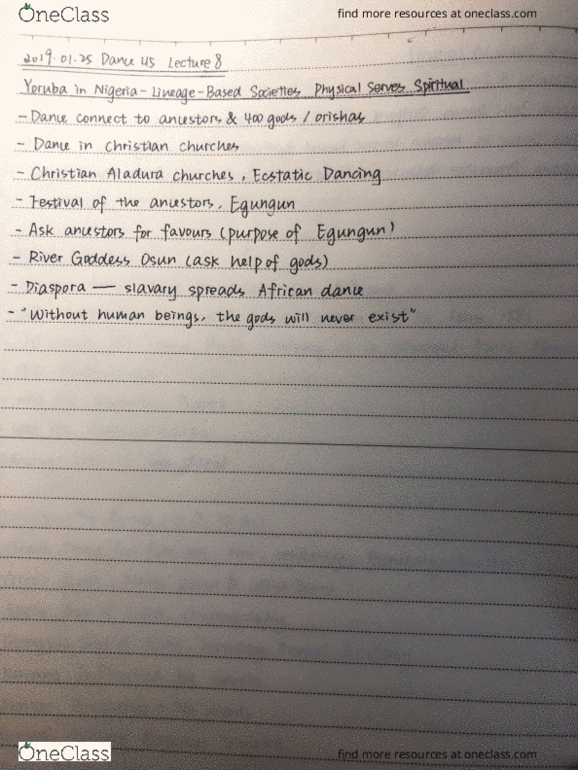 OneClass
find more resources at oneclass.com
2019.01.25 Dance 45 Lecture 8
Yoruba in Nigeria - Lineage-Based Societies Physical Serves Spiritual
- Dance connect to ancestors & 400 gods / orishas
- Dance in Christian churches
- Christian Aladura churches, Ecstatic Dancing
- Festival of the ancestors, Egungun
- Ask ancestors for favours (purpose of Egungun)
- River Goddess Osun (ask help of gods)
- Diaspora — slavary spreads African dance
- "Without human beings, the gods will never exist"
OneClass
find more resources at oneclass.com